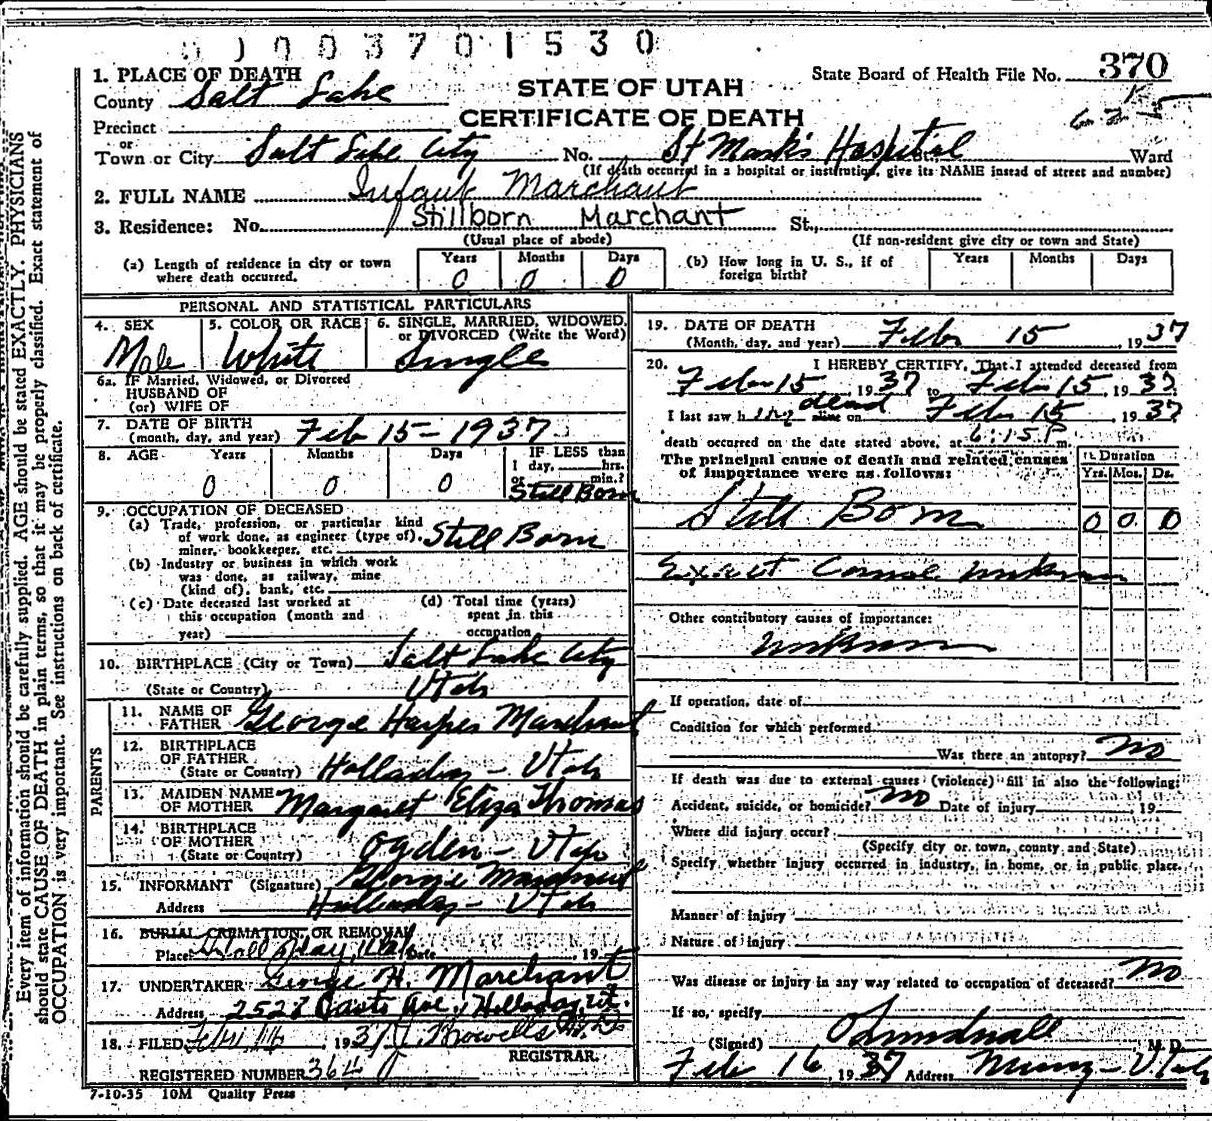 0 0 0 3 7 0 1 5 3 0
1. PLACE OF DEATH
STATE OF UTAH
CERTIFICATE OF DEATH
State Board of Health File No. 370
County Salt Lake
Precinct
or
Town or City Salt Lake City No. St Mark's Hospital Ward
(If death occurred in a hospital or institution, give its NAME instead of street and number)
2. FULL NAME Infant Marchant
Stillborn Marchant
3. Residence: No. St.,
(Usual place of abode) (If non-resident give city or town and State)
(a) Length of residence in city or town where death occurred. Years 0 Months 0 Days 0
(b) How long in U. S., if of foreign birth? Years Months Days
PERSONAL AND STATISTICAL PARTICULARS
4. SEX Male
5. COLOR OR RACE White
6. SINGLE, MARRIED, WIDOWED, or DIVORCED (Write the Word) Single
6a. IF Married, Widowed, or Divorced
HUSBAND OF
(or) WIFE OF
7. DATE OF BIRTH
(month, day, and year) Feb 15-1937
8. AGE Years 0 Months 0 Days 0
IF LESS than
1 day, hrs.
or min.?
Still Born
9. OCCUPATION OF DECEASED
(a) Trade, profession, or particular kind
of work done, as engineer (type of), Still Born
miner, bookkeeper, etc.
(b) Industry or business in which work
was done, as railway, mine
(kind of), bank, etc.
(c) Date deceased last worked at
this occupation (month and
year)
(d) Total time (years)
spent in this
occupation
10. BIRTHPLACE (City or Town) Salt Lake City
(State or Country) Utah
PARENTS
11. NAME OF
FATHER George Harper Marchant
12. BIRTHPLACE
OF FATHER
(State or Country) Holladay - Utah
13. MAIDEN NAME
OF MOTHER Margaret Eliza Thomas
14. BIRTHPLACE
OF MOTHER
(State or Country) Ogden - Utah
15. INFORMANT (Signature) George Marchant
Address Holladay - Utah
16. BURIAL, CREMATION, OR REMOVAL
Place Holladay, Utah Date , 19
17. UNDERTAKER George H. Marchant
Address Ave., Holladay, Ut.
18. FILED , 1937
REGISTRAR.
REGISTERED NUMBER 364
7-10-35 10M Quality Press
19. DATE OF DEATH
(Month, day, and year) Feb 15, 1937
20. I HEREBY CERTIFY, That I attended deceased from
Feb 15, 1937 to Feb 15, 1937
I last saw h im dead alive on Feb 15, 1937
death occurred on the date stated above, at 6:15 P m.
The principal cause of death and related causes
of importance were as follows:
Duration
Yrs. Mos. Ds.
Still Born 0 0 0
Exact Cause unknown
Other contributory causes of importance:
unknown
If operation, date of
Condition for which performed
Was there an autopsy? no
If death was due to external causes (violence) fill in also the following:
Accident, suicide, or homicide? no Date of injury 19
Where did injury occur?
(Specify city or town, county and State)
Specify whether injury occurred in industry, in home, or in public place.
Manner of injury
Nature of injury
Was disease or injury in any way related to occupation of deceased? no
If so, specify
(Signed) M. D.
Feb 16 1937 Address Murray - Utah
Every item of information should be carefully supplied. AGE should be stated EXACTLY. PHYSICIANS
should state CAUSE OF DEATH in plain terms, so that it may be properly classified. Exact statement of
OCCUPATION is very important. See instructions on back of certificate.